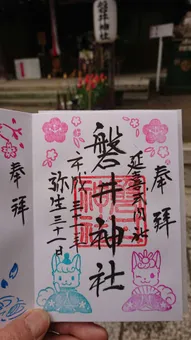 磐井神社
奉拝
延喜式内社
奉拝
磐井神社
平成三十一年
弥生三十一日